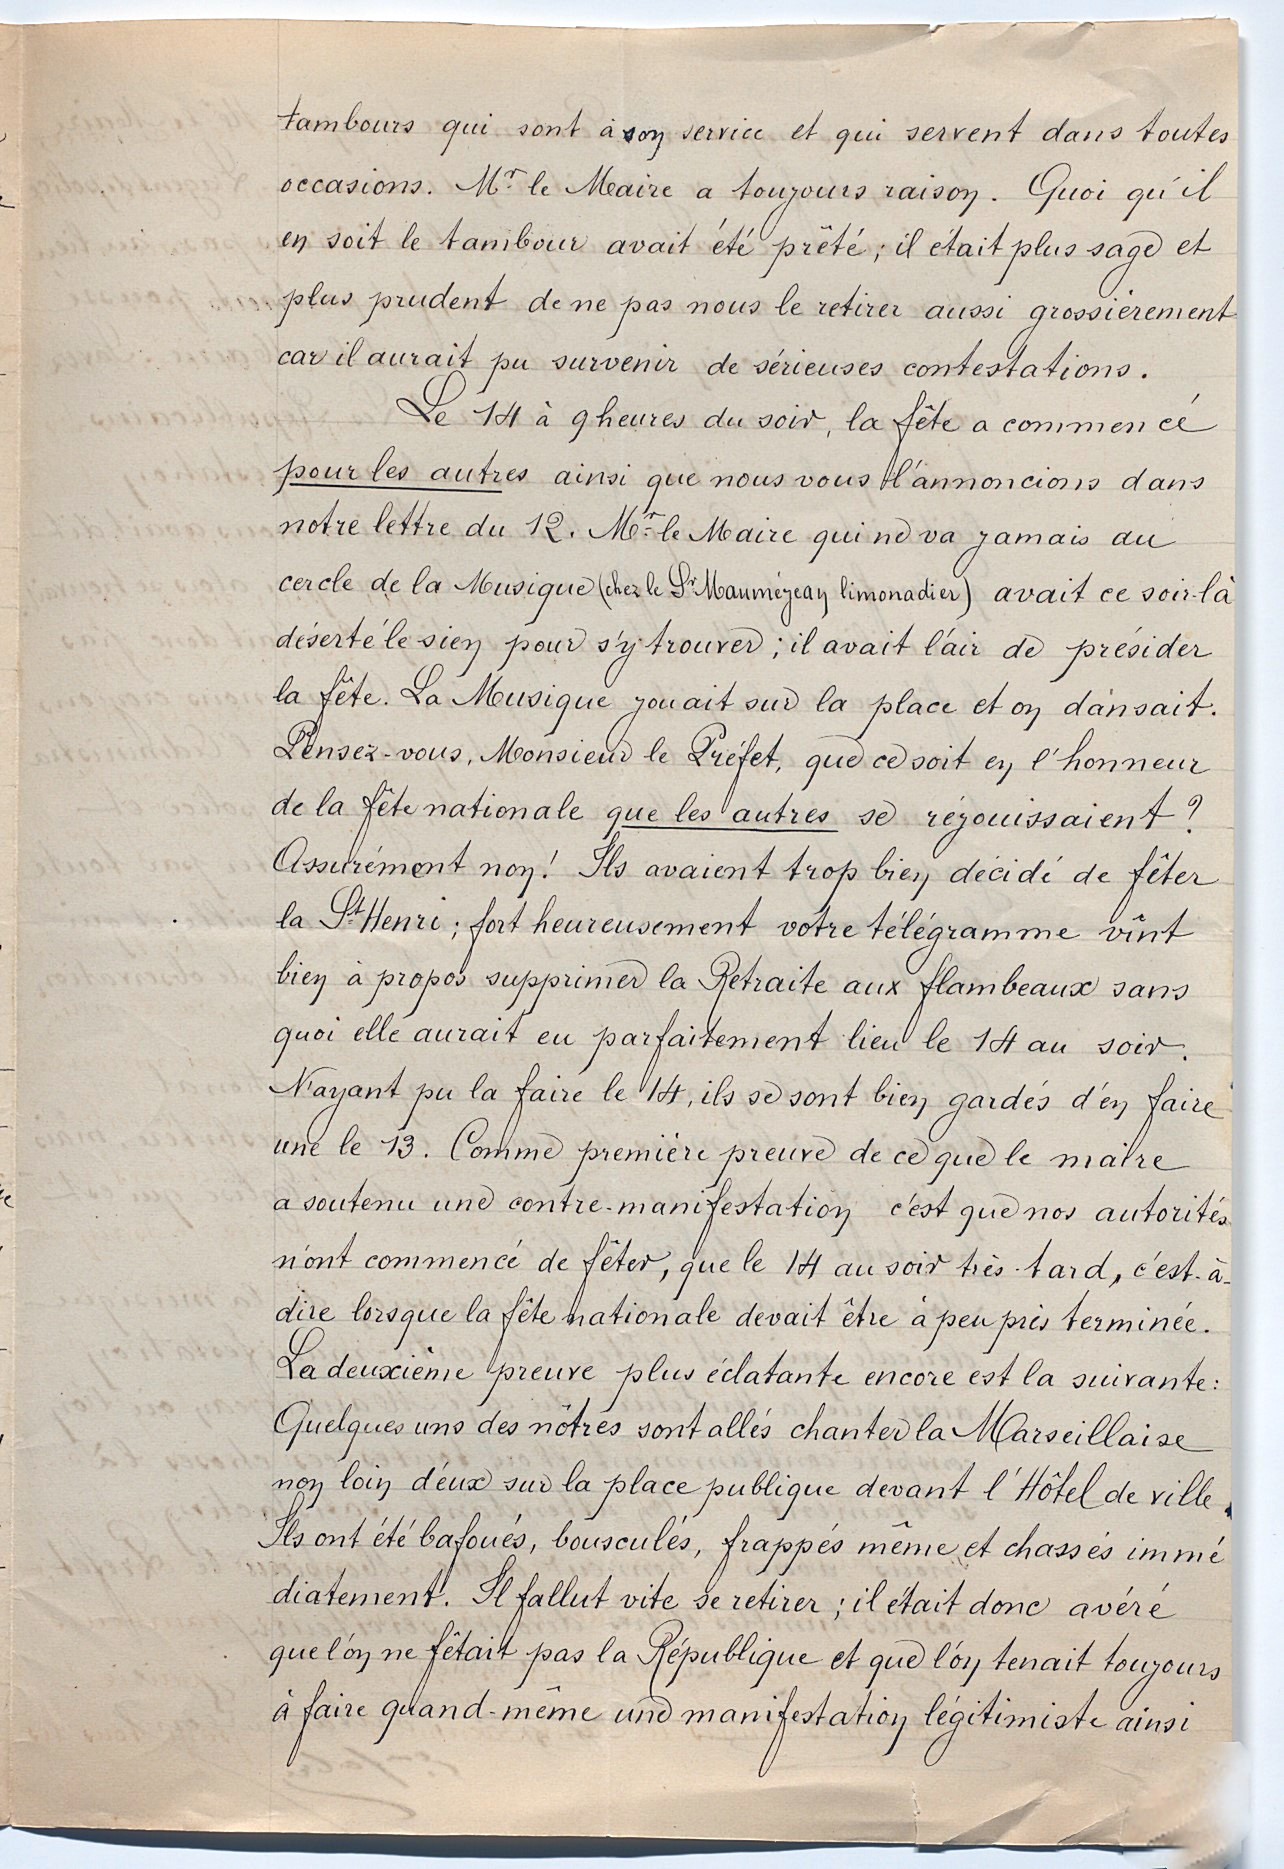 tambours qui sont à son service et qui servent dans toutes
occasions. Mr. le Maire a toujours raison. Quoi qu'il
en soit le tambour avait été prêté ; il était plus sage et
plus prudent de ne pas nous le retirer aussi grossièrement
car il aurait pu survenir de sérieuses contestations.
Le 14 à 9 heures du soir, la fête a commencé
pour les autres ainsi que nous vous l'annoncions dans
notre lettre du 12. Mr. le Maire qui ne va jamais au
cercle de la Musique (chez le Sr Mauméjean limonadier) avait ce soir-là
déserté le sien pour s'y trouver ; il avait l'air de présider
la fête. La Musique jouait sur la place et on dansait.
Pensez-vous, Monsieur le Préfet, que ce soit en l'honneur
de la fête nationale que les autres se réjouissaient ?
Assurément non ! Ils avaient trop bien décidé de fêter
la St. Henri ; fort heureusement votre télégramme vînt
bien à propos supprimer la Retraite aux flambeaux sans
quoi elle aurait eu parfaitement lieu le 14 au soir.
N'ayant pu la faire le 14, ils se sont bien gardés d'en faire
une le 13. Comme première preuve de ce que le maire
a soutenu une contre-manifestation c'est que nos autorités
n'ont commencé de fêter, que le 14 au soir très-tard, c'est-à-
dire lorsque la fête nationale devait être à peu près terminée.
La deuxième preuve plus éclatante encore est la suivante :
Quelques uns des nôtres sont allés chanter la Marseillaise
non loin d'eux sur la place publique devant l'Hôtel de ville.
Ils ont été bafoués, bousculés, frappés même et chassés immé
diatement. Il fallut vite se retirer ; il était donc avéré
que l'on ne fêtait pas la République et que l'on tenait toujours
à faire quand-même une manifestation légitimiste ainsi